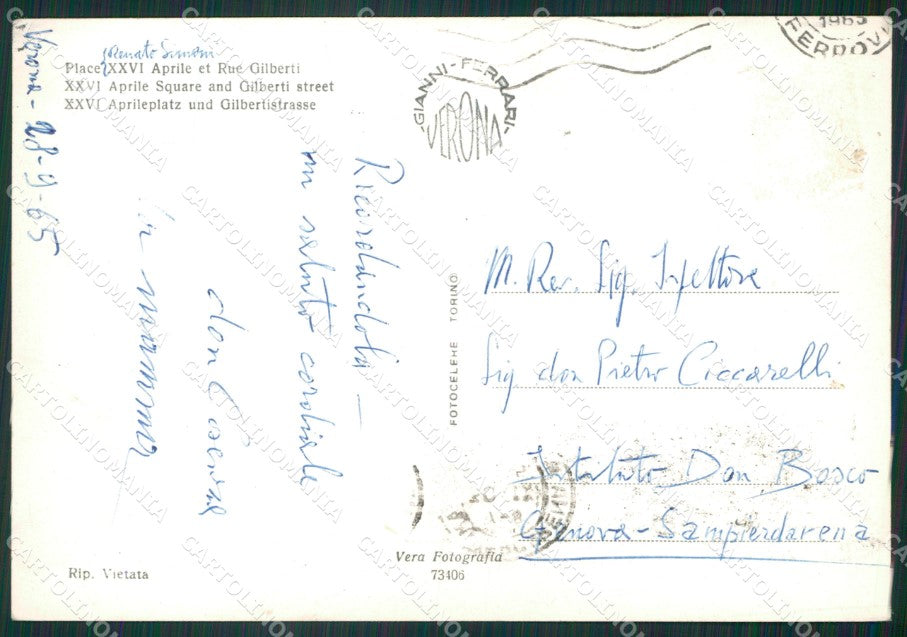 Verona - 28-9-65
Renato Simoni
Place XXVI Aprile et Rue Gilberti
XXVI Aprile Square and Gilberti street
XXVI Aprileplatz und Gilbertistrasse
GIANNI-FERRARI-
VERONA
1965
FERROVI
Ricordandola -
un saluto cordiale
don
mamma
FOTOCELERE TORINO
M. Rev. Sig. Ispettore
Sig don Pietro Ciccarelli
Istituto Don Bosco
Genova - Sampierdarena
Vera Fotografia
73406
Rip. Vietata
CARTOLINOMANIA